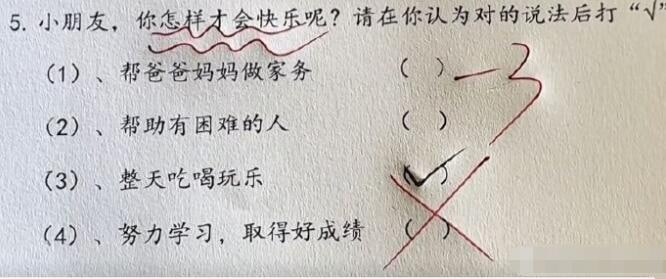 5. 小朋友，你怎样才会快乐呢？请在你认为对的说法后打“√”
（1）、帮爸爸妈妈做家务 （ ） —3
（2）、帮助有困难的人 （ ）
（3）、整天吃喝玩乐 （√）
（4）、努力学习，取得好成绩 （ ）